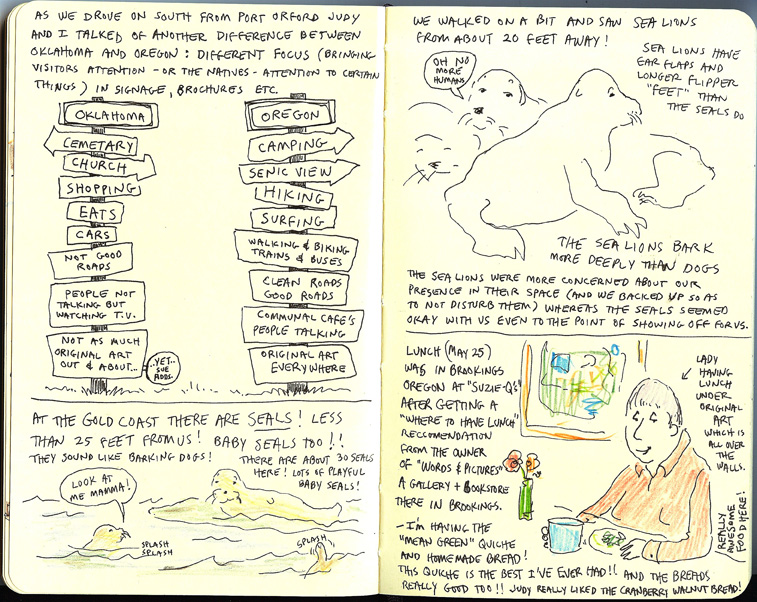 AS WE DROVE ON SOUTH FROM PORT ORFORD JUDY
AND I TALKED OF ANOTHER DIFFERENCE BETWEEN
OKLAHOMA AND OREGON: DIFFERENT FOCUS (BRINGING
VISITORS ATTENTION - OR THE NATIVES - ATTENTION TO CERTAIN
THINGS) IN SIGNAGE, BROCHURES ETC.
OKLAHOMA
CEMETARY
CHURCH
SHOPPING
EATS
CARS
NOT GOOD
ROADS
PEOPLE NOT
TALKING BUT
WATCHING T.V.
NOT AS MUCH
ORIGINAL ART
OUT & ABOUT...
..YET..
SUE
ADDS.
OREGON
CAMPING
SENIC VIEW
HIKING
SURFING
WALKING & BIKING
TRAINS & BUSES
CLEAN ROADS
GOOD ROADS
COMMUNAL CAFE'S
PEOPLE TALKING
ORIGINAL ART
EVERYWHERE
AT THE GOLD COAST THERE ARE SEALS! LESS
THAN 25 FEET FROM US! BABY SEALS TOO!!
THEY SOUND LIKE BARKING DOGS!
THERE ARE ABOUT 30 SEALS
HERE! LOTS OF PLAYFUL
BABY SEALS!
LOOK AT
ME MAMMA!
SPLASH
SPLASH
SPLASH
WE WALKED ON A BIT AND SAW SEA LIONS
FROM ABOUT 20 FEET AWAY!
OH NO
MORE
HUMANS
SEA LIONS HAVE
EAR FLAPS AND
LONGER FLIPPER
"FEET" THAN
THE SEALS DO
THE SEA LIONS BARK
MORE DEEPLY THAN DOGS
THE SEA LIONS WERE MORE CONCERNED ABOUT OUR
PRESENCE IN THEIR SPACE (AND WE BACKED UP SO AS
TO NOT DISTURB THEM) WHEREAS THE SEALS SEEMED
OKAY WITH US EVEN TO THE POINT OF SHOWING OFF FOR US.
LUNCH (MAY 25)
WAS IN BROOKINGS
OREGON AT "SUZIE-Q'S"
AFTER GETTING A
"WHERE TO HAVE LUNCH"
RECCOMENDATION
FROM THE OWNER
OF "WORDS & PICTURES"
A GALLERY + BOOKSTORE
THERE IN BROOKINGS.
- I'M HAVING THE
"MEAN GREEN" QUICHE
AND HOMEMADE BREAD!
THIS QUICHE IS THE BEST I'VE EVER HAD!! AND THE BREADS
REALLY GOOD TOO!! JUDY REALLY LIKED THE CRANBERRY WALNUT BREAD!
LADY
HAVING
LUNCH
UNDER
ORIGINAL
ART
WHICH IS
ALL OVER
THE
WALLS.
REALLY
AWESOME
FOOD HERE!